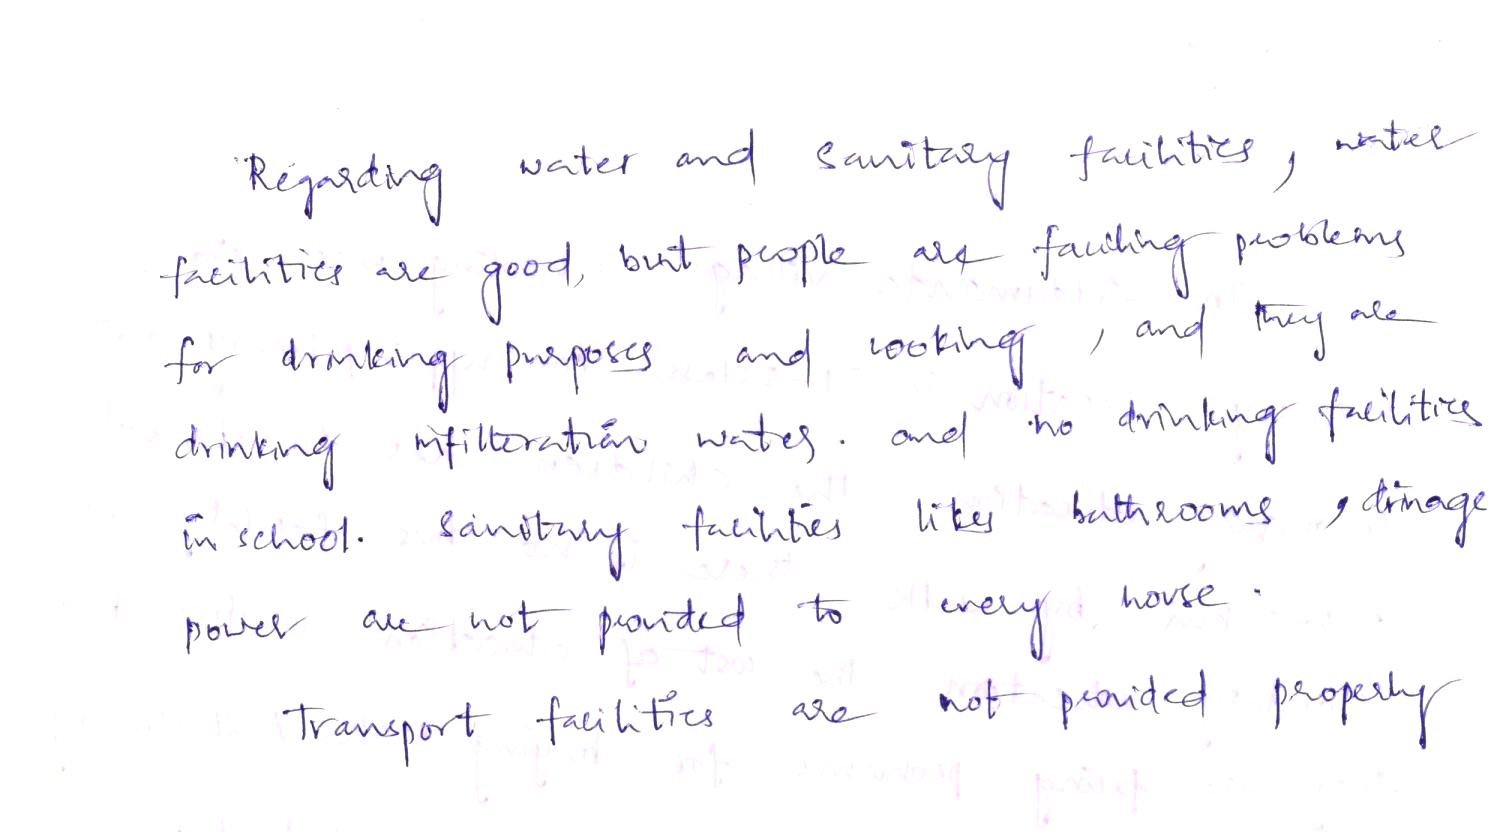 Regarding water and sanitary facilities, water
facilities are good, but people are faciling problems
for drinking purposes and cooking, and they are
drinking infilteration water. and no drinking facilities
in school. sanitary facilities likes bathrooms, drinage
power are not provided to every house.
Transport facilities are not provided properly